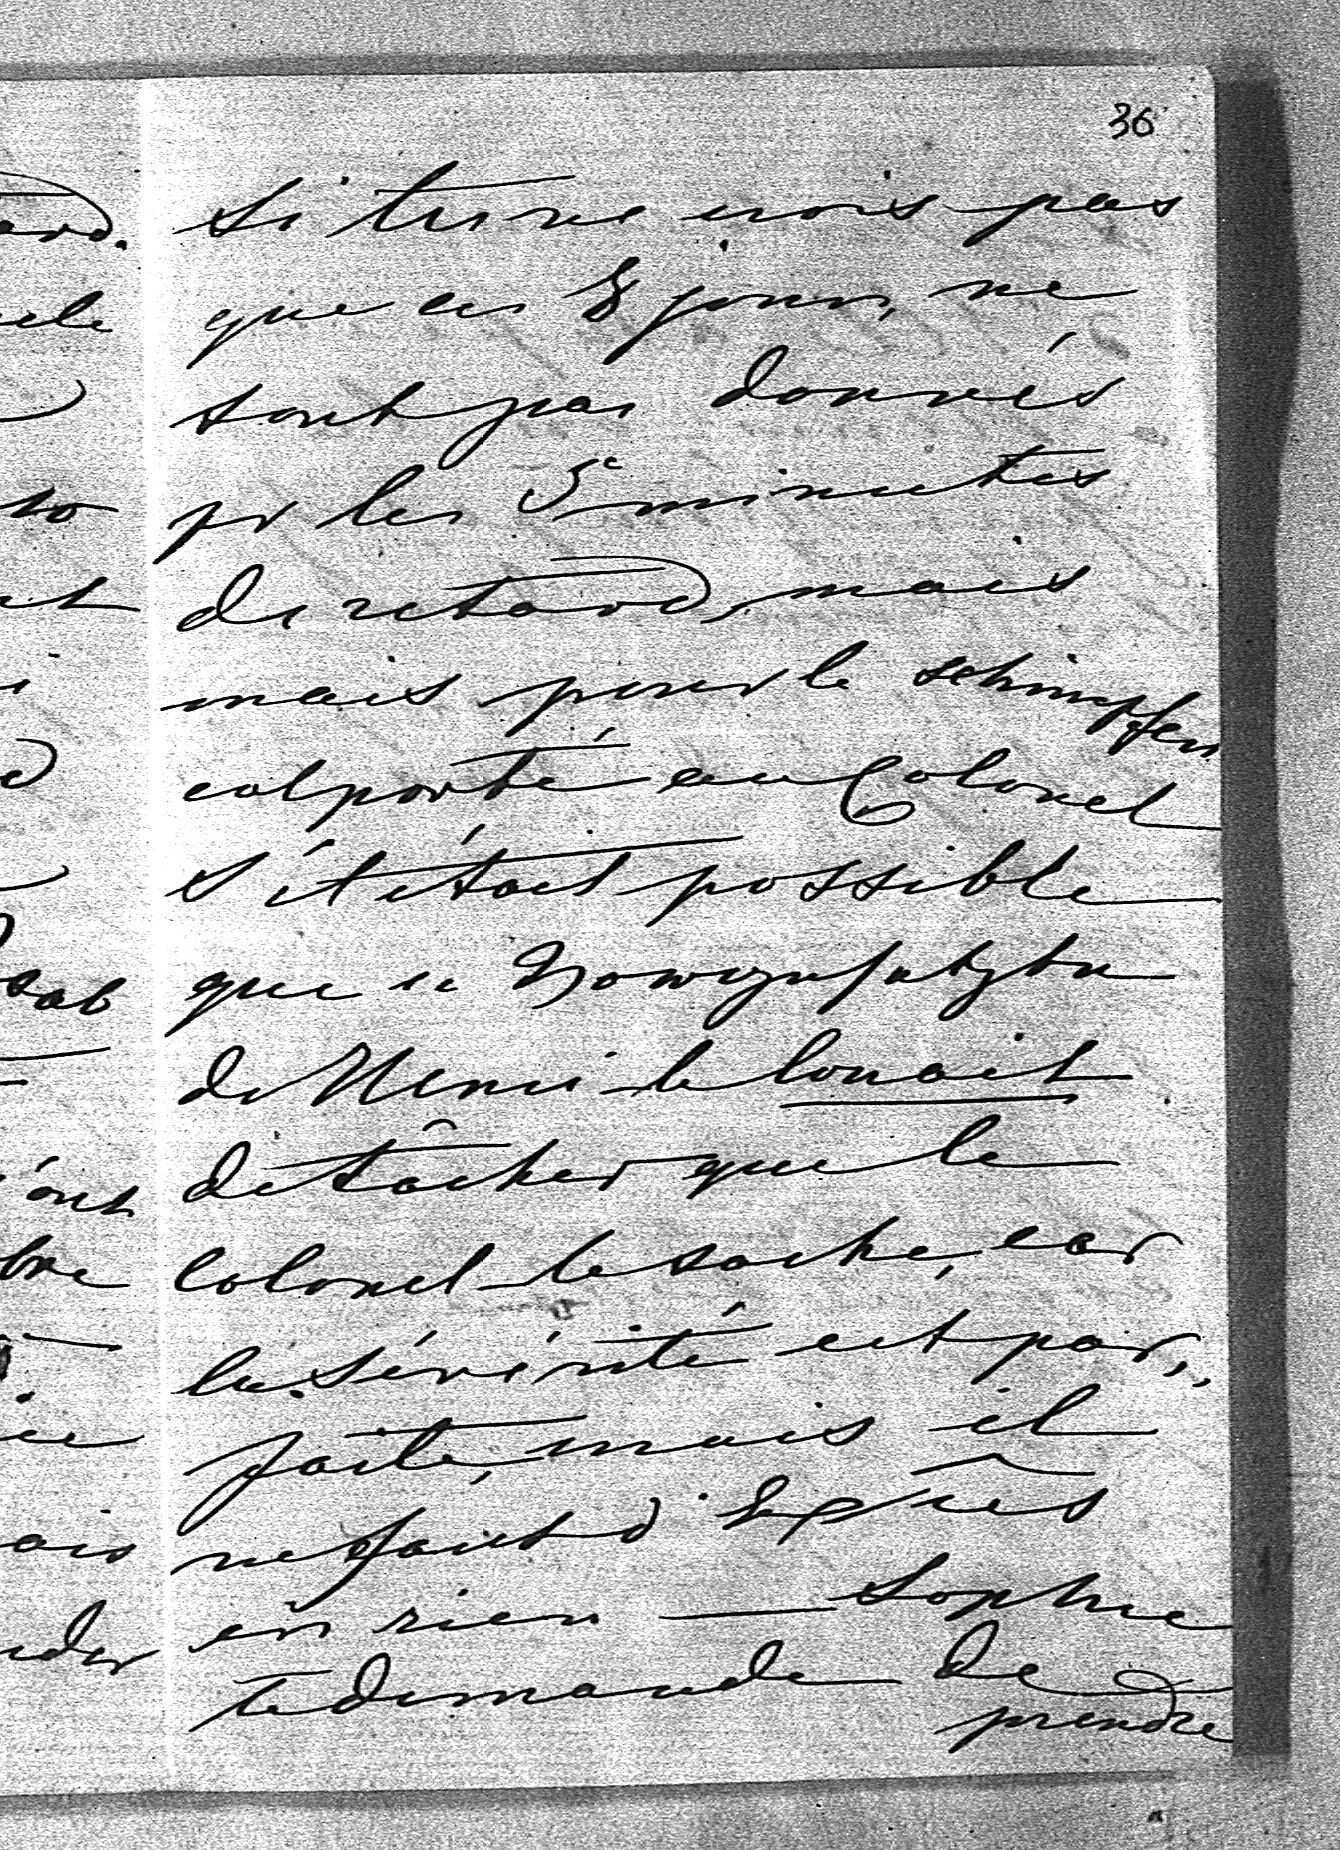 36
Si tu ne crois pas
que ces 8 jours, ne
sont pas donnés
pr les 5 minutes
de retard, mais
mais pour le schimpfen
colporté au Colonel
s'il était possible
que ce
de le louait
de tâcher que le
Colonel le sache, car
la sévérité est par,,
faite, mais il
ne faut d'
en rien — Sophie
te demande de
prendre